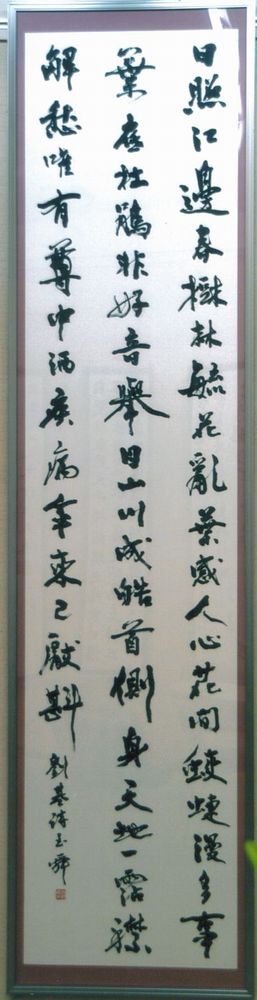 日照江邊春樹林繁花亂葉感人心花間蛺蝶漫多事
葉底杜鵑非好音舉目山川成皓首側身天地一霑襟
解愁唯有尊中酒疾病年來已厭斟
劉基詩玉